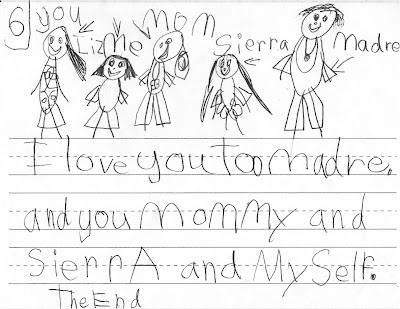 6) you Me Mom Sierra Madre
I love you Too Madre,
and you MoMMy and
SierrA and MySelf.
The End